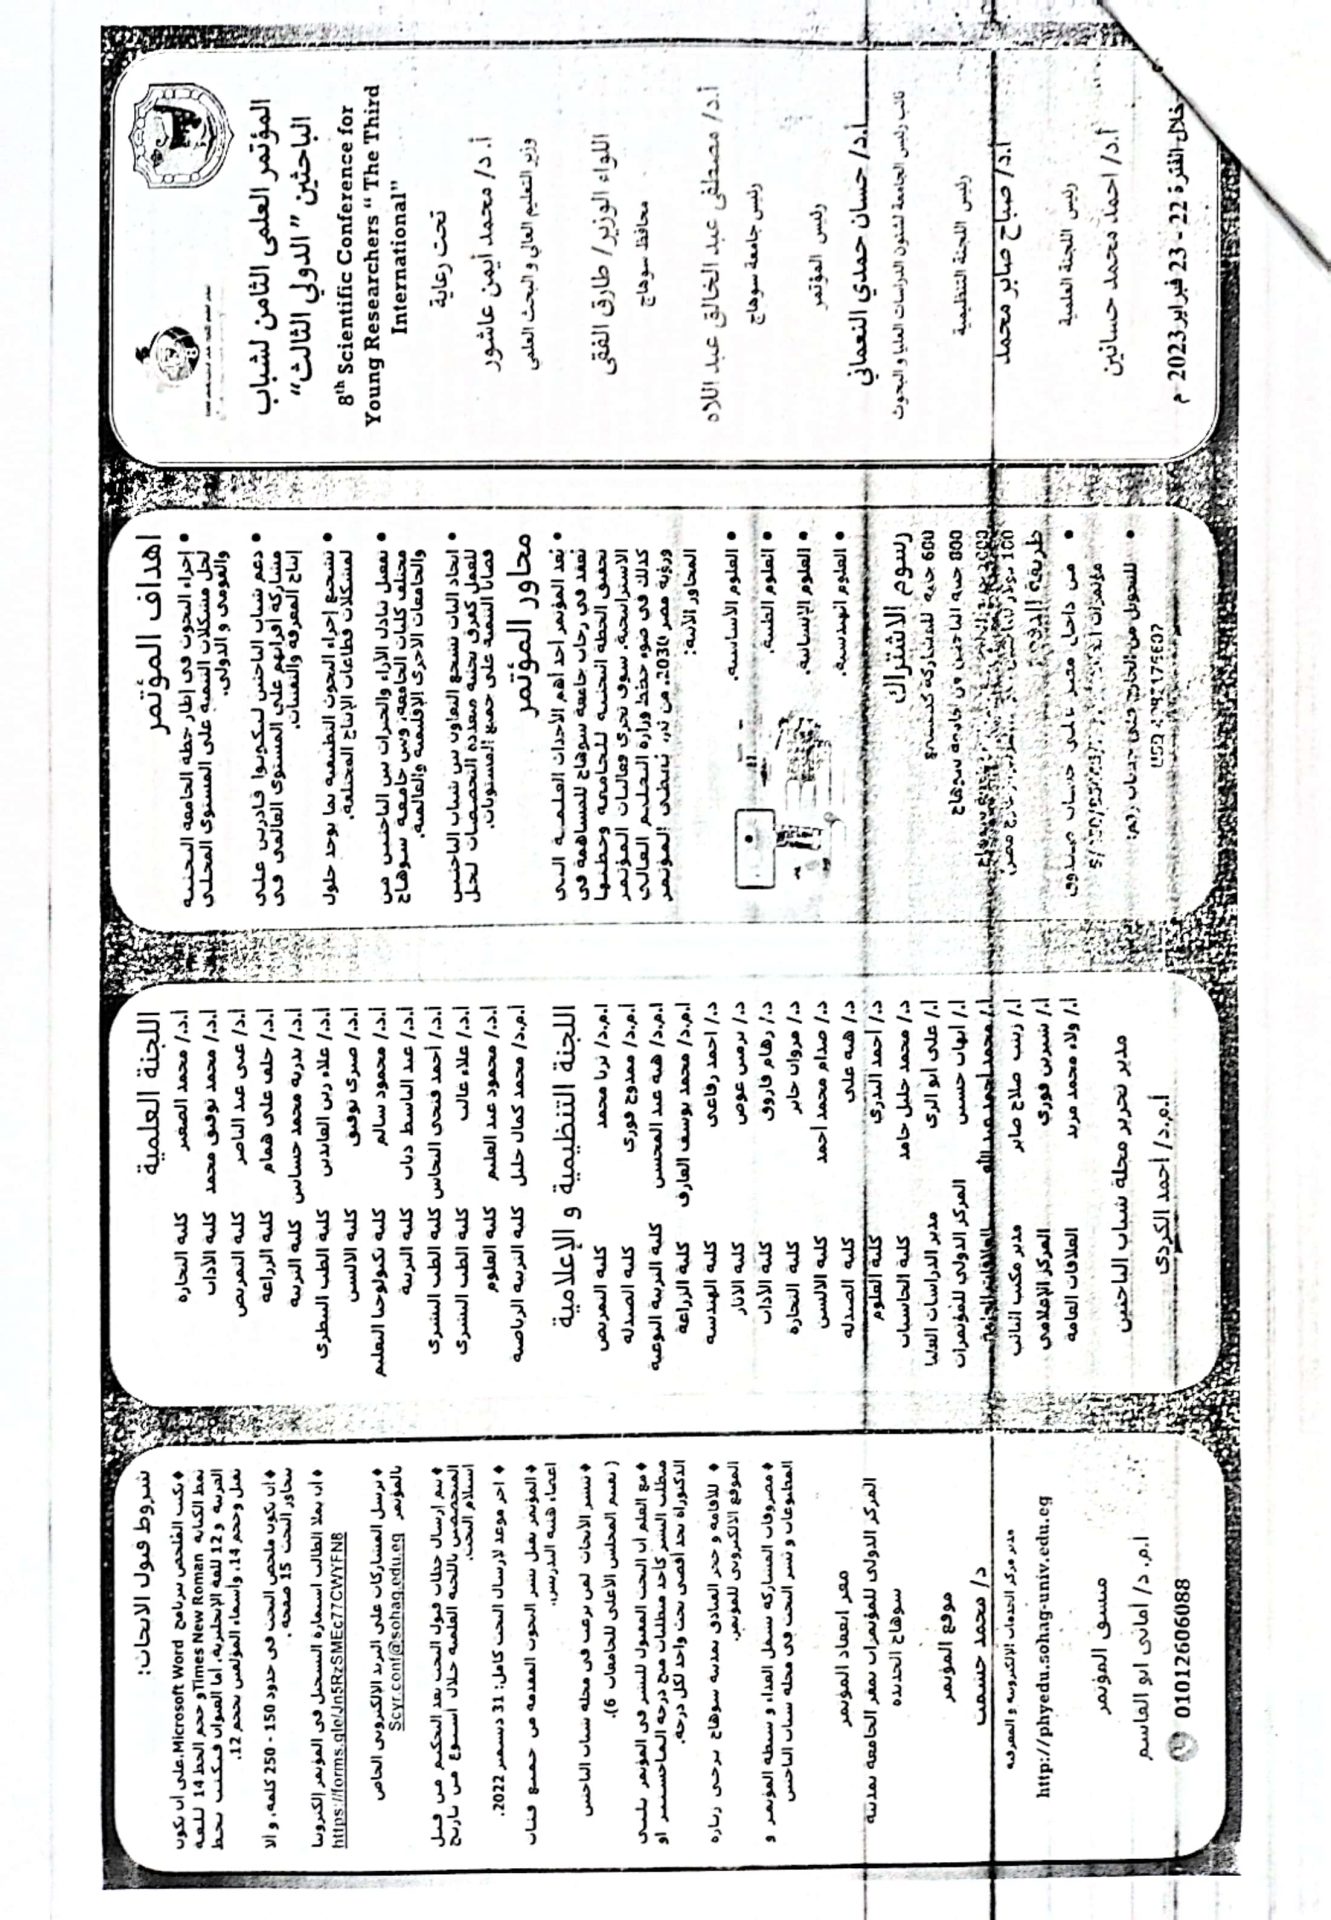 المؤتمر العلمى الثامن لشباب
الباحثين "الدولي الثالث"
8th Scientific Conference for
Young Researchers " The Third
International"
تحت رعاية
أ.د/ محمد أيمن عاشور
وزير التعليم العالي و البحث العلمى
اللواء الوزير/ طارق الفقى
محافظ سوهاج
أ.د/ مصطفى عبد الخالق عبد اللاه
رئيس جامعة سوهاج
رئيس المؤتمر
أ.د/ حسان حمدي النعماني
نائب رئيس الجامعة لشئون الدراسات العليا و البحوث
رئيس اللجنة التنظيمية
أ.د/ صباح صابر محمد
رئيس اللجنة العلمية
أ.د/ احمد محمد حسانين
خلال الفترة 22 - 23 فبراير 2023 م
اهداف المؤتمر
• إجراء البحوث فى إطار خطة الجامعة البحثية
لحل مشكلات التنمية على المستوى المحلى
والقومى و الدولى.
• دعم شباب الباحثين ليكونوا قادرين على
مشاركة أقرانهم على المستوى العالمى فى
إنتاج المعرفة والتقنيات.
• تشجيع إجراء البحوث التطبيقية بما يوجد حلول
لمشكلات قطاعات الإنتاج المختلفة.
• تفعيل تبادل الآراء والخبرات بين الباحثين من
مختلف كليات الجامعة، وبين جامعة سوهاج
والجامعات الاخرى الإقليمية والعالمية.
• ايجاد اليات تشجع التعاون بين شباب الباحثين
للعمل كفرق بحثية متعددة التخصصات لحل
قضايا التنمية على جميع المستويات.
محاور المؤتمر
• يعد المؤتمر أحد أهم الأحداث العلمية التى
تعقد فى رحاب جامعة سوهاج للمساهمة فى
تحقيق الخطة البحثية للجامعة وخطتها
الاستراتيجية. سوف تجرى فعاليات المؤتمر
كذلك فى ضوء خطط وزارة التعليم العالى
ورؤية مصر 2030. من ثم، يغطى المؤتمر
المحاور الآتية:
• العلوم الأساسية.
• العلوم الطبية.
• العلوم الإنسانية.
• العلوم الهندسية.
رسوم الاشتراك
600 جنيه للمشاركة كمستمع
800 جنيه للباحثين من جامعة سوهاج
طريقة الدفع
• من داخل مصر على حساب صندوق
• للتحويل من الخارج على حساب رقم:
اللجنة العلمية
أ.د./ محمد الصغير كلية التجارة
أ.د./ محمد توفيق محمد كلية الآداب
أ.د./ عبير عبد الناصر كلية التمريض
أ.د./ خلف على همام كلية الزراعة
أ.د./ بدرية محمد حسانين كلية التربية
أ.د./ علاء زين العابدين كلية الطب البيطرى
أ.د./ صبرى توفيق كلية الالسن
أ.د./ محمود سالم كلية تكنولوجيا التعليم
أ.د./ عبد الباسط دياب كلية التربية
أ.د./ أحمد فتحى النحاس كلية الطب البشرى
أ.د./ علاء غالب كلية الطب البشرى
أ.د./ محمود عبد العليم كلية العلوم
أ.م.د/ محمد كمال خليل كلية التربية الرياضية
اللجنة التنظيمية و الإعلامية
أ.م.د/ ثريا محمد كلية التمريض
أ.م.د./ ممدوح فوزى كلية الصيدلة
أ.م.د./ هبة عبد المحسن كلية التربية النوعية
أ.م.د/ محمد يوسف العارف كلية الزراعة
د./ احمد رفاعى كلية الهندسة
د./ نرمين عوض كلية الآثار
د./ رهام فاروق كلية الآداب
د./ مروان جابر كلية التجارة
د./ صدام محمد أحمد كلية الالسن
د./ هبة على كلية الصيدلة
د./ أحمد البدرى كلية العلوم
د./ محمد خليل حامد كلية الحاسبات
أ./ على ابو الزى مدير الدراسات العليا
أ./ ايهاب حسين المركز الدولي للمؤتمرات
أ./ محمد احمد عبد اللاه
أ./ زينب صلاح صابر مدير مكتب النائب
أ./ شيرين فوزى المركز الإعلامي
أ./ ولاء محمد فريد العلاقات العامة
مدير تحرير مجلة شباب الباحثين
أ.م.د./ أحمد الكردى
شروط قبول الابحاث:
♦يكتب الملخص ببرنامج Microsoft Word.على أن يكون
نمط الكتابة Times New Roman و حجم الخط 14 للغة
العربية و 12 للغة الإنجليزية، أما العنوان فيكتب بخط
ثقيل وحجم 14، وأسماء المؤلفين بحجم 12.
♦أن يكون ملخص البحث فى حدود 150 - 250 كلمة، و الا
يتجاوز البحث 15 صفحة.
♦أن يملأ الطالب استمارة التسجيل فى المؤتمر إلكترونيا
https://forms.gle/Jn5RzSMEc77CWYFN8
♦ترسل المشاركات على البريد الإلكترونى الخاص
بالمؤتمر Scyr.conf@sohag.edu.eg
♦يتم إرسال خطاب قبول البحث بعد التحكيم من قبل
المتخصصين باللجنة العلمية خلال أسبوع من تاريخ
استلام البحث.
♦اخر موعد لارسال البحث كامل: 31 ديسمبر 2022.
♦المؤتمر يقبل بنشر البحوث المقدمة من جميع فئات
أعضاء هيئة التدريس.
♦تنشر الأبحاث لمن يرغب فى مجلة شباب الباحثين
( تقييم المجلس الأعلى للجامعات 6).
♦مع العلم أن البحث المقبول للنشر فى المؤتمر يلبى
متطلب النشر كأحد متطلبات منح درجة الماجستير او
الدكتوراة بحد أقصى بحث واحد لكل درجة.
♦ للاقامة و حجز الفنادق بمدينة سوهاج يرجى زيارة
الموقع الالكترونى للمؤتمر.
♦مصروفات المشاركة تشمل الغداء و شنطة المؤتمر و
المطبوعات و نشر البحث فى مجلة شباب الباحثين
مقر انعقاد المؤتمر
المركز الدولى للمؤتمرات بمقر الجامعة بمدينة
سوهاج الجديدة
موقع المؤتمر
د/ محمد حشمت
مدير مركز الخدمات الإلكترونية و المعرفية
http://phyedu.sohag-univ.edu.eg
منسق المؤتمر
أ.م.د/ أمانى ابو القاسم
01012606088